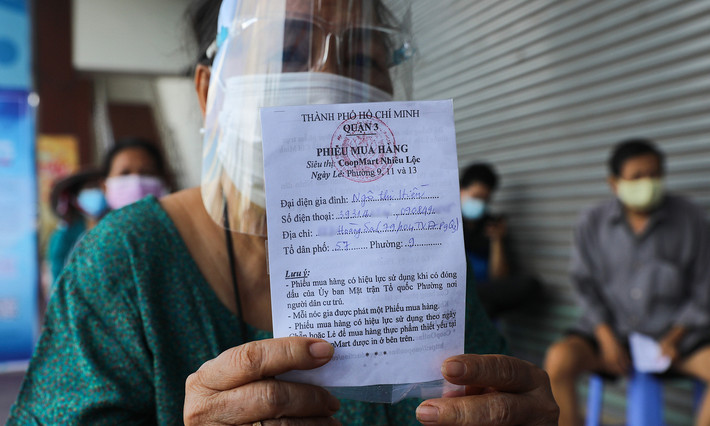 THÀNH PHỐ HỒ CHÍ MINH
QUẬN 3
PHIẾU MUA HÀNG
Siêu thị: CoopMart Nhiêu Lộc
Ngày Lẻ: Phường 9, 11 và 13
Đại diện gia đình: Ngô thị Hiền
Số điện thoại:
Địa chỉ: Hoàng Sa
Tổ dân phố: 57 Phường: 9
Lưu ý:
- Phiếu mua hàng có hiệu lực sử dụng khi có đóng
dấu của Ủy ban Mặt trận Tổ quốc Phường nơi
người dân cư trú.
- Mỗi nóc gia được phát một Phiếu mua hàng.
- Phiếu mua hàng có hiệu lực sử dụng theo ngày
Chẵn hoặc Lẻ để mua hàng thực phẩm thiết yếu tại
Mart được in ở bên trên.